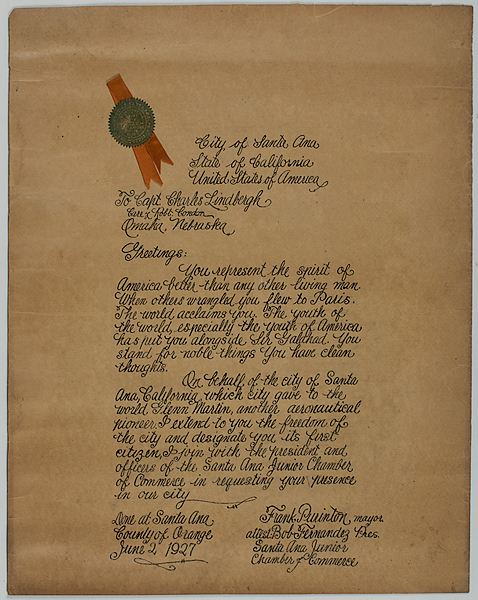 City of Santa Ana
State of California
United States of America
To Capt Charles Lindbergh
Care of Robt. Condon
Omaha, Nebraska
Greetings:
You represent the spirit of
America better than any other living man
When others wrangled you flew to Paris.
The world acclaims you. The youth of
the world, especially the youth of America
has put you alongside Sir Galahad. You
stand for noble things You have clean
thoughts.
On behalf of the city of Santa
Ana, California, which city gave to the
world Glenn Martin, another aeronautical
pioneer, I extend to you the freedom of
the city and designate you its first
citizen, I join with the president and
officers of the Santa Ana Junior Chamber
of Commerce in requesting your presence
in our city
Done at Santa Ana
County of Orange
June 2, 1927
Frank Purinton, mayor
attest Bob Fernandez Pres.
Santa Ana Junior
Chamber of Commerce